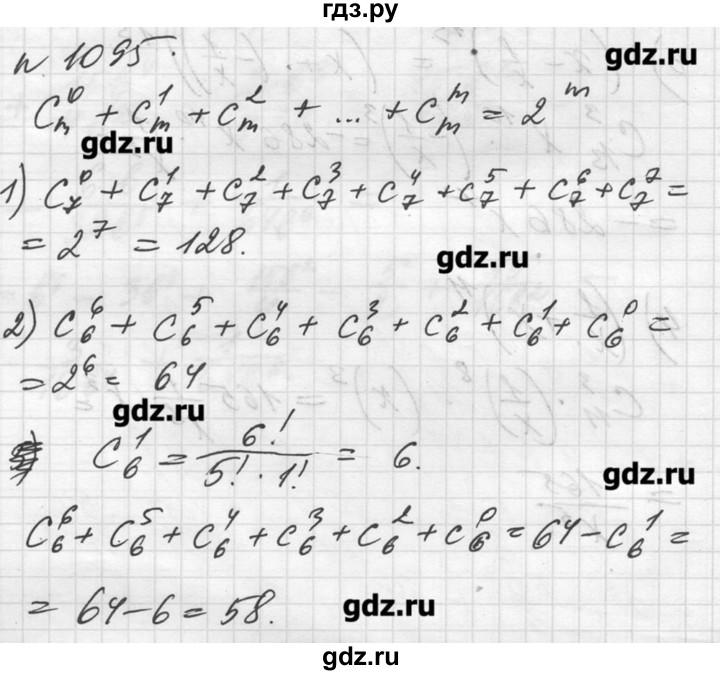 гдз.ру
gdz.ru
n. 1095.
C_m^0 + C_m^1 + C_m^2 + ... + C_m^m = 2^m
gdz.ru
1) C_7^0 + C_7^1 + C_7^2 + C_7^3 + C_7^4 + C_7^5 + C_7^6 + C_7^7 =
= 2^7 = 128.
gdz.ru
2) C_6^6 + C_6^5 + C_6^4 + C_6^3 + C_6^2 + C_6^1 + C_6^0 =
= 2^6 = 64
gdz.ru
C_6^1 = 6!/(5! · 1!) = 6.
gdz.ru
C_6^6 + C_6^5 + C_6^4 + C_6^3 + C_6^2 + C_6^0 = 64 - C_6^1 =
= 64 - 6 = 58.
gdz.ru
gdz.ru